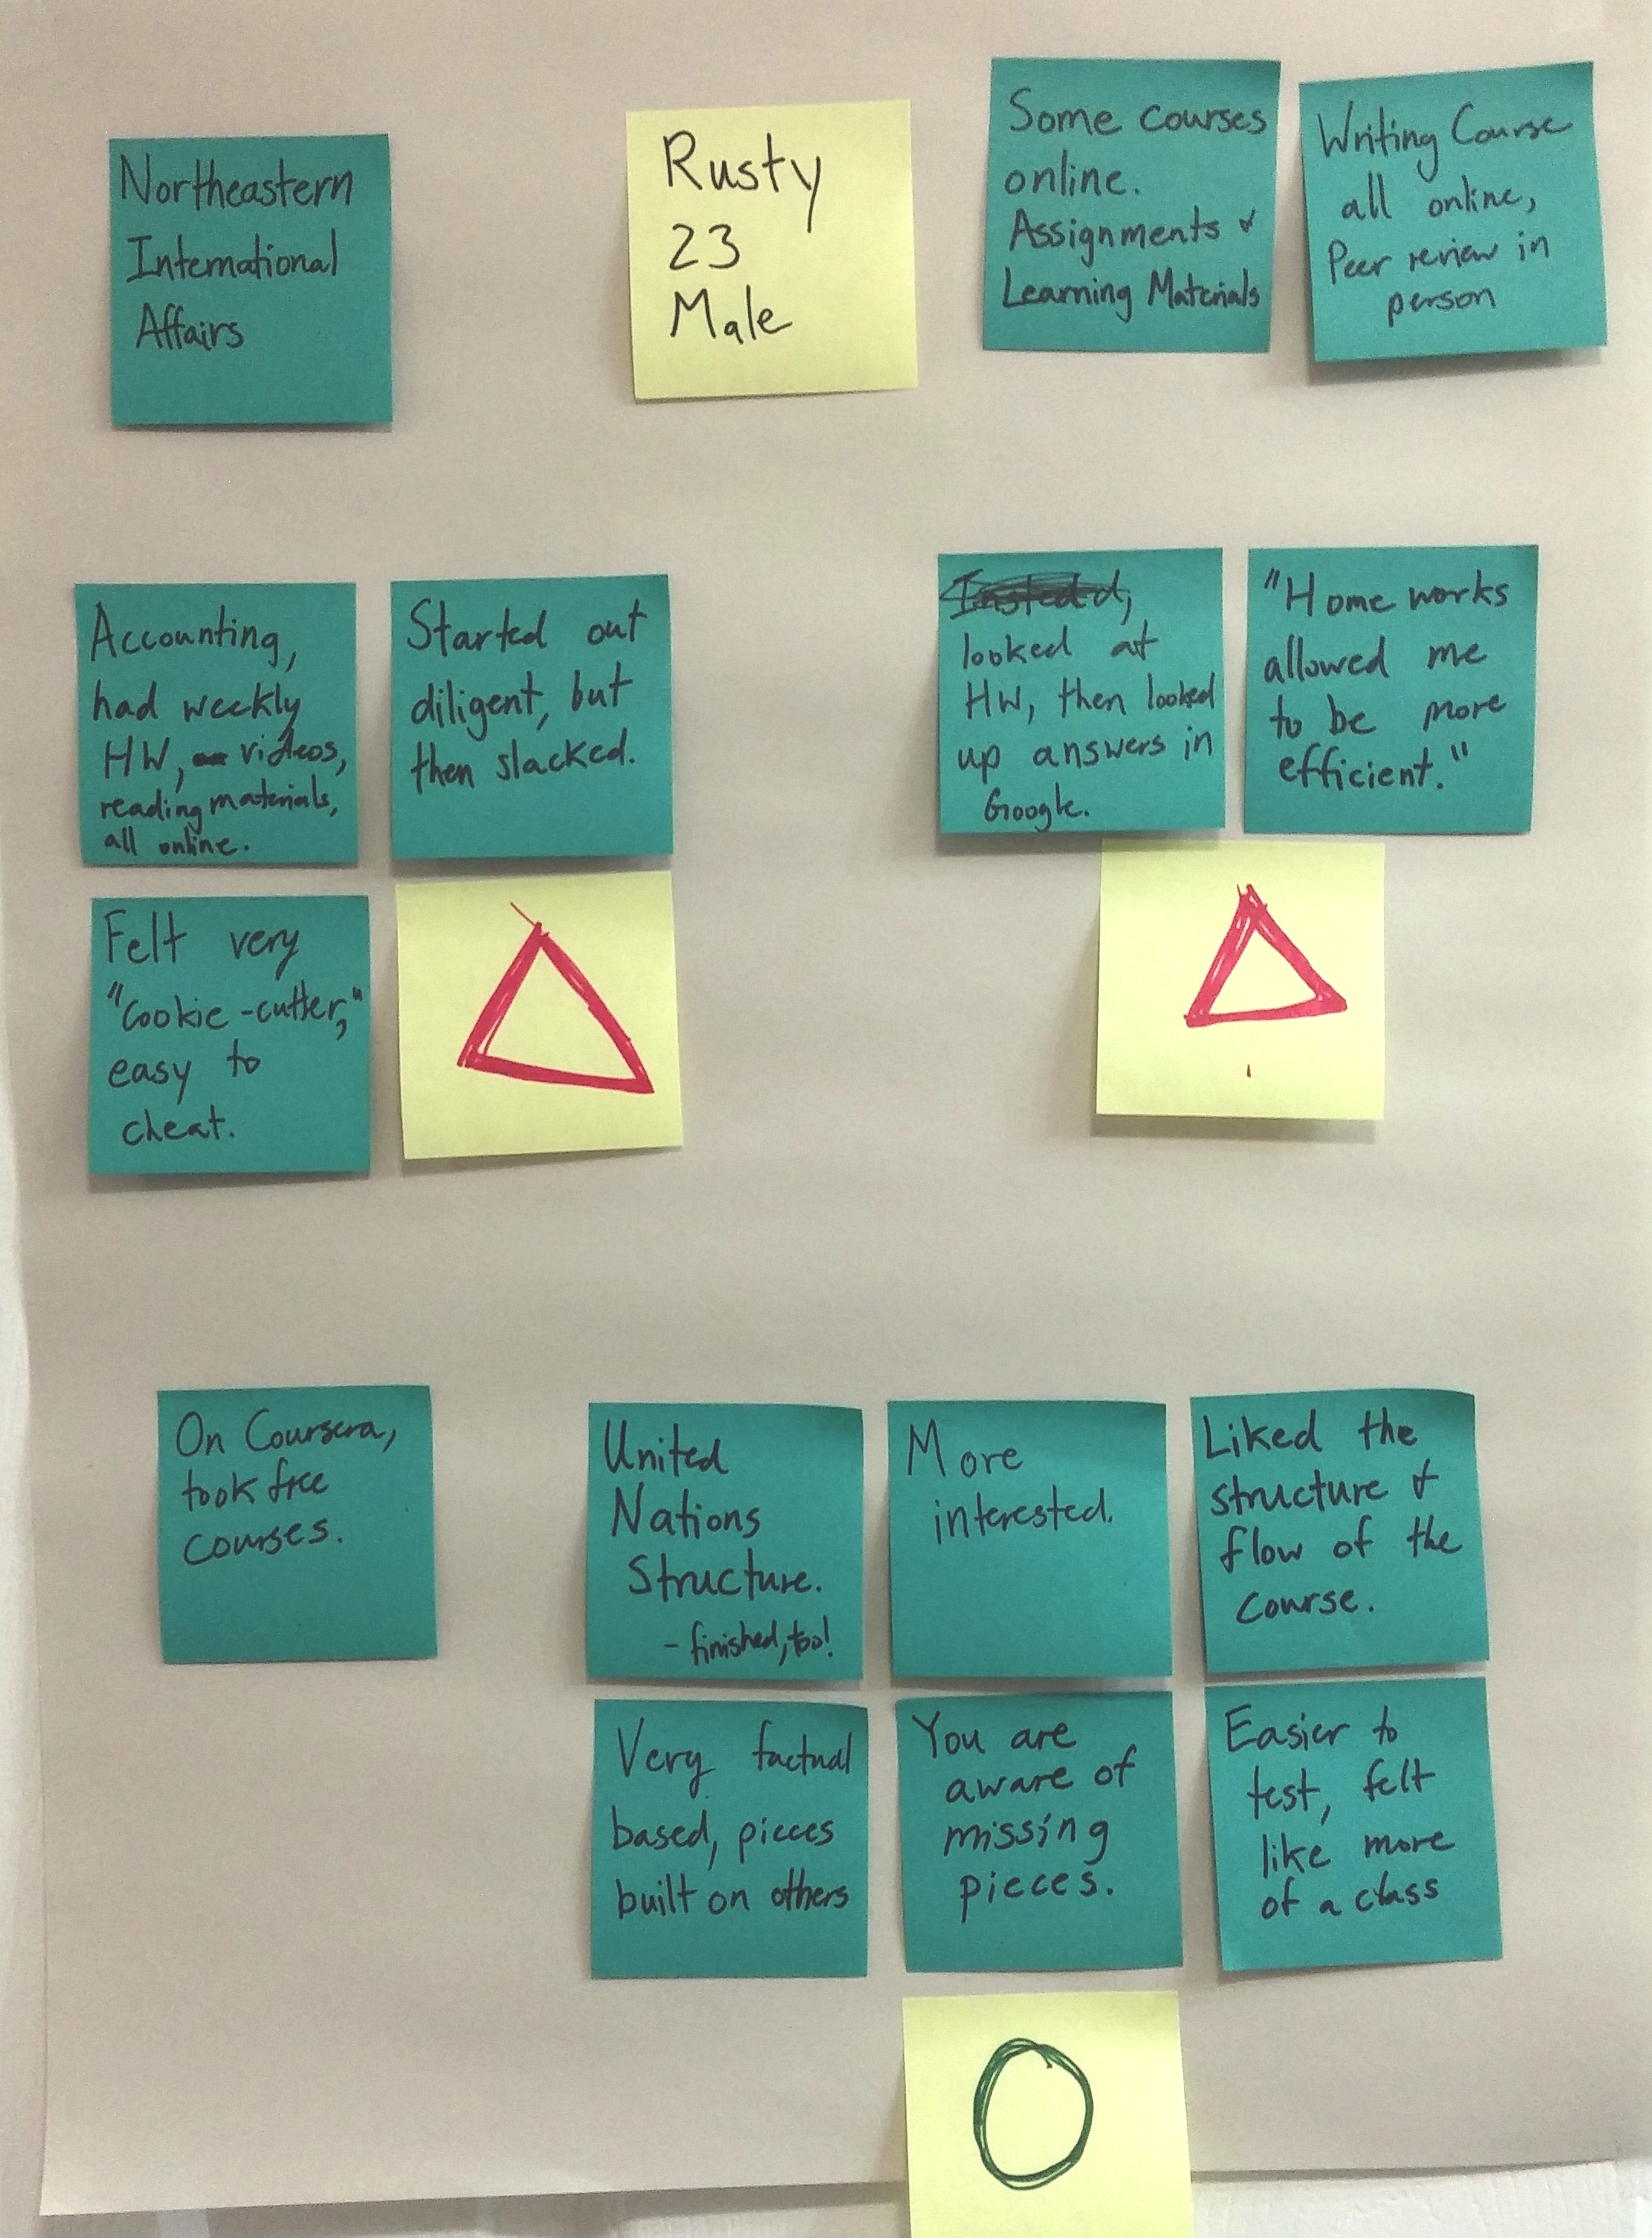 Northeastern
International
Affairs
Rusty
23
Male
Some courses
online.
Assignments &
Learning Materials
Writing Course
all online,
Peer review in
person
Accounting,
had weekly
HW, videos,
reading materials,
all online.
Started out
diligent, but
then slacked.
Felt very
"Cookie-cutter,"
easy to
cheat.
looked at
HW, then looked
up answers in
Google.
"Home works
allowed me
to be more
efficient."
On Coursera,
took free
courses.
United
Nations
Structure.
- finished, too!
More
interested.
Liked the
structure &
flow of the
course.
Very factual
based, pieces
built on others
You are
aware of
missing
pieces.
Easier to
test, felt
like more
of a class